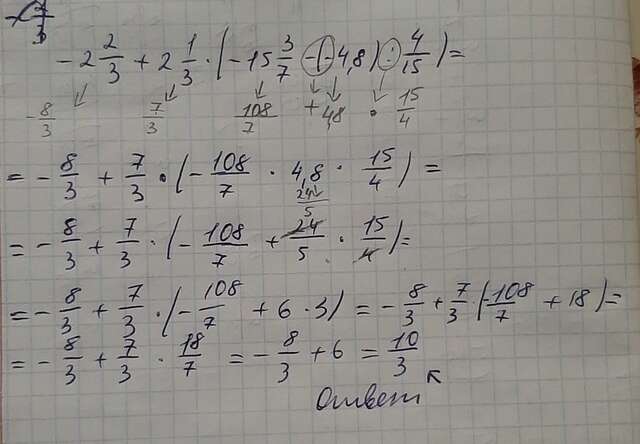 -2 2/3 + 2 1/3 · (-15 3/7 - (-4,8) : 4/15) =
-8/3 7/3 108/7 + 4,8 · 15/4
= -8/3 + 7/3 · (-108/7 · 4,8 · 15/4) =
24/5
= -8/3 + 7/3 · (-108/7 + 24/5 · 15/4) =
= -8/3 + 7/3 · (-108/7 + 6 · 3) = -8/3 + 7/3 · (-108/7 + 18) =
= -8/3 + 7/3 · 18/7 = -8/3 + 6 = 10/3
Ответ